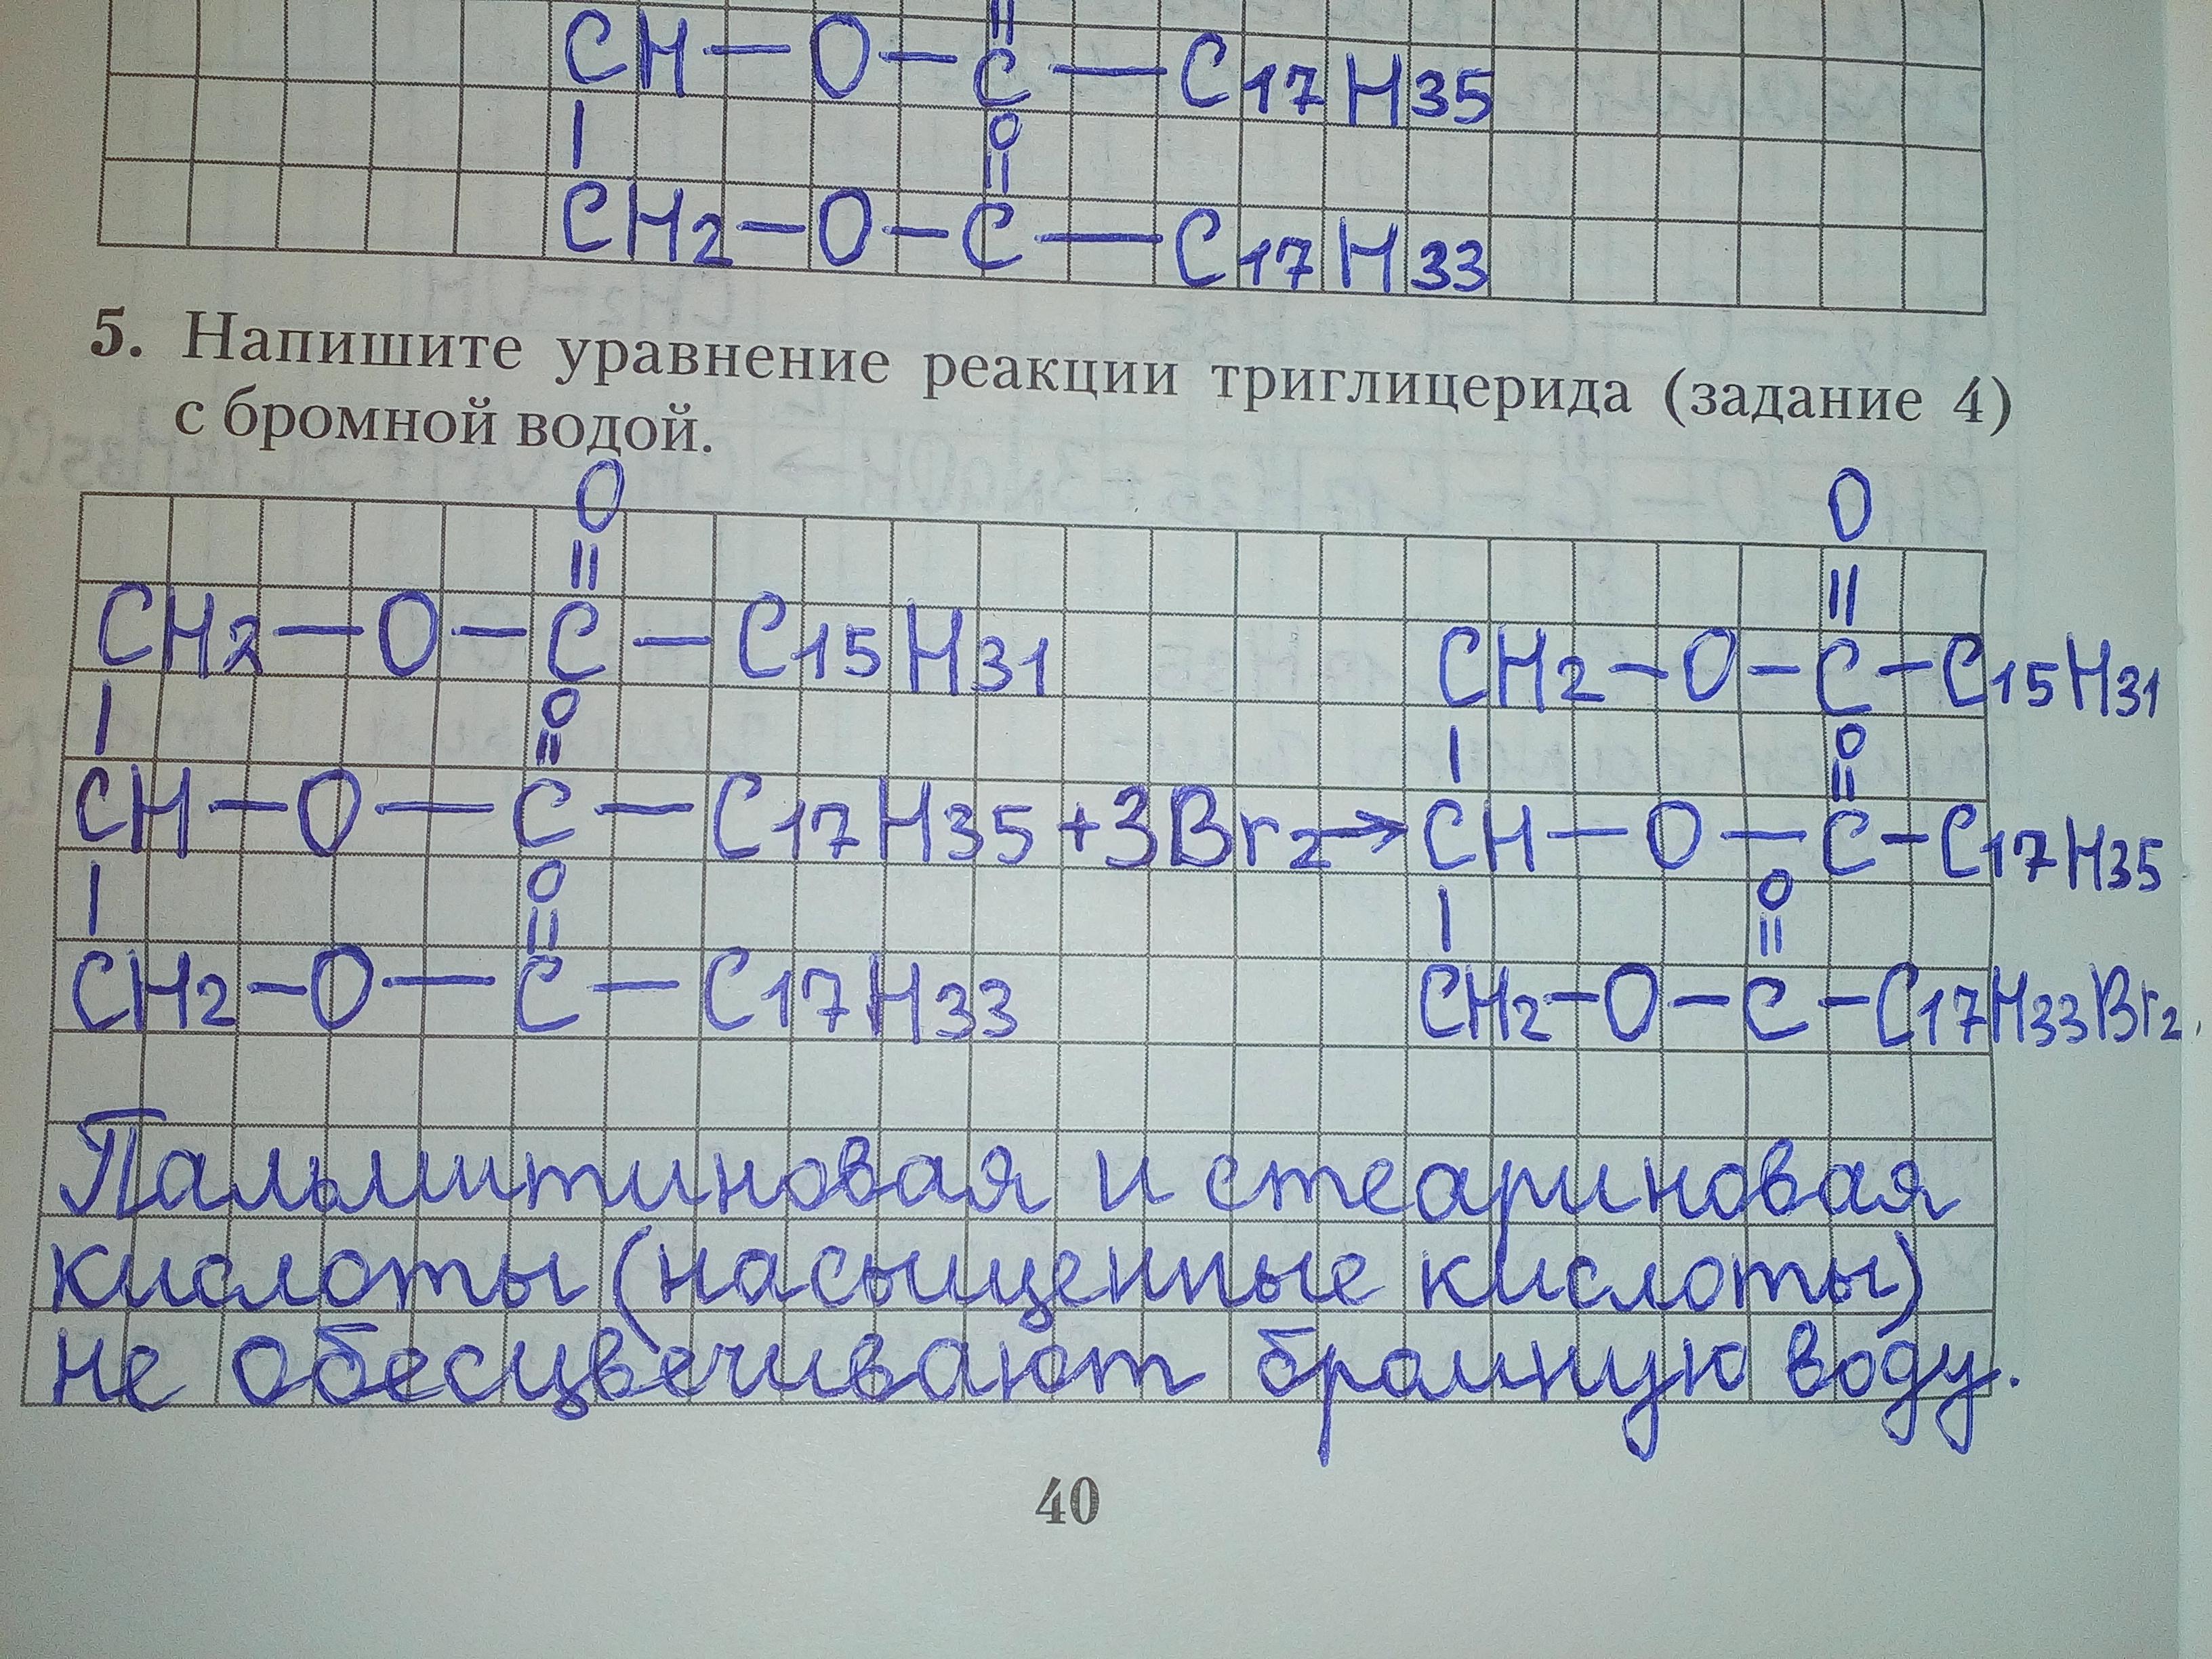 CH — O — C — C17H35
O
CH2 — O — C — C17H33
5. Напишите уравнение реакции триглицерида (задание 4)
с бромной водой.
O O
CH2 — O — C — C15H31 CH2 — O — C — C15H31
O O
CH — O — C — C17H35 + 3Br2 → CH — O — C — C17H35
O O
CH2 — O — C — C17H33 CH2 — O — C — C17H33Br2.
Пальмитиновая и стеариновая
кислоты (насыщенные кислоты)
не обесцвечивают бромную воду.
40